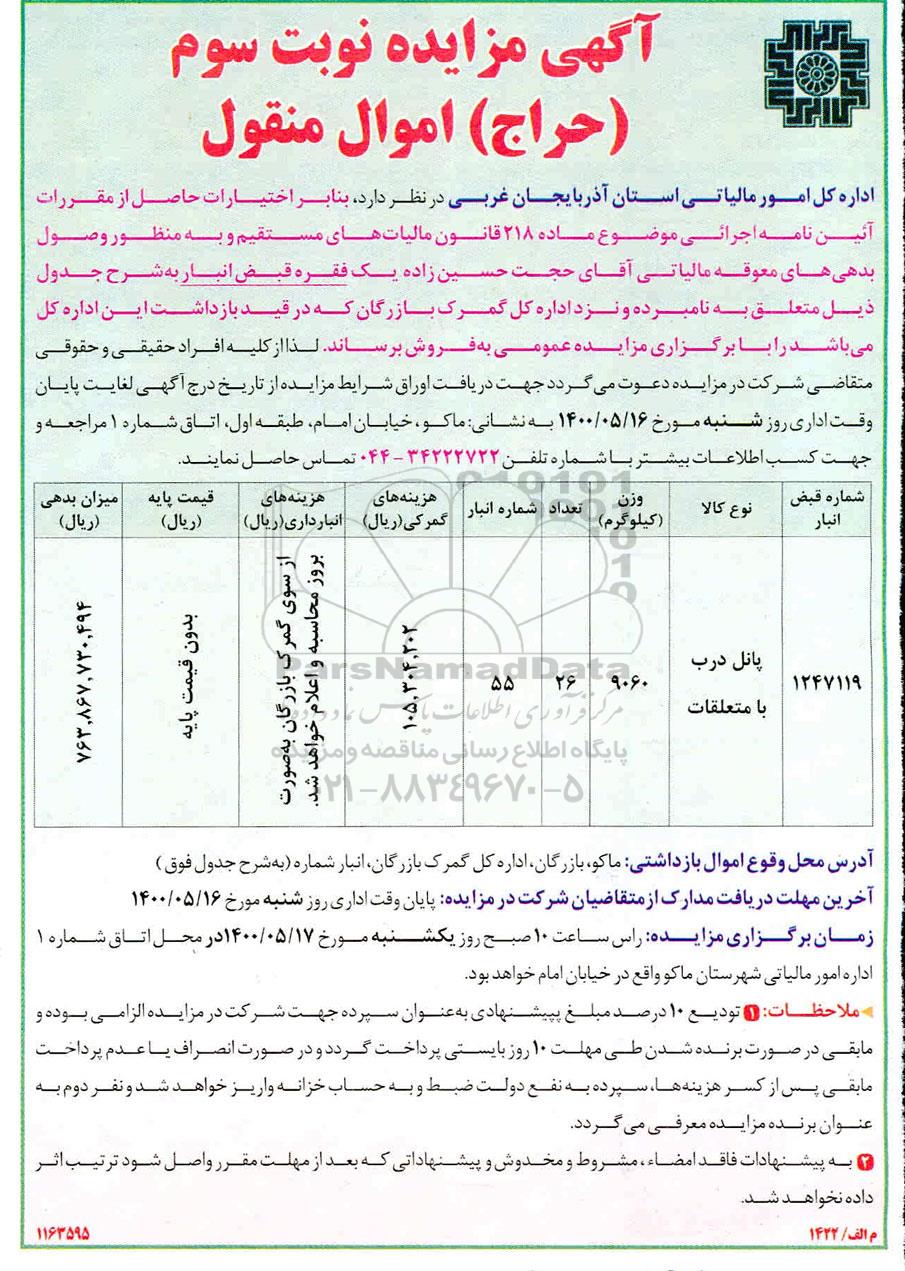 آگهی مزایده نوبت سوم
(حراج) اموال منقول
اداره کل امور مالیاتی استان آذربایجان غربی در نظر دارد، بنابر اختیارات حاصل از مقررات
آئین نامه اجرائی موضوع ماده ۲۱۸ قانون مالیات‌های مستقیم و به منظور وصول
بدهی‌های معوقه مالیاتی آقای حجت حسین زاده یک فقره قبض انبار به‌شرح جدول
ذیل متعلق به نامبرده و نزد اداره کل گمرک بازرگان که در قید بازداشت این اداره کل
می‌باشد را با برگزاری مزایده عمومی به‌فروش برساند. لذا از کلیه افراد حقیقی و حقوقی
متقاضی شرکت در مزایده دعوت می‌گردد جهت دریافت اوراق شرایط مزایده از تاریخ درج آگهی لغایت پایان
وقت اداری روز شنبه مورخ ۱۴۰۰/۰۵/۱۶ به نشانی: ماکو، خیابان امام، طبقه اول، اتاق شماره ۱ مراجعه و
جهت کسب اطلاعات بیشتر با شماره تلفن ۳۴۲۲۲۷۲۲-۰۴۴ تماس حاصل نمایند.
شماره قبض انبار
نوع کالا
وزن (کیلوگرم)
تعداد
شماره انبار
هزینه‌های گمرکی(ریال)
هزینه‌های انبارداری(ریال)
قیمت پایه (ریال)
میزان بدهی (ریال)
۱۲۴۷۱۱۹
پانل درب
با متعلقات
۹۰۶۰
۲۶
۵۵
۱۰۵,۳۰۴,۲۰۲
از سوی گمرک بازرگان به‌صورت
بروز محاسبه و اعلام خواهد شد.
بدون قیمت پایه
۷۶۳,۸۶۷,۷۳۰,۴۹۴
ParsNamadData
مرکز فرآوری اطلاعات پارس نماد داده
پایگاه اطلاع رسانی مناقصه و مزایده
۰۲۱-۸۸۳۴۹۶۷۰-۵
آدرس محل وقوع اموال بازداشتی: ماکو، بازرگان، اداره کل گمرک بازرگان، انبار شماره (به‌شرح جدول فوق)
آخرین مهلت دریافت مدارک از متقاضیان شرکت در مزایده: پایان وقت اداری روز شنبه مورخ ۱۴۰۰/۰۵/۱۶
زمان برگزاری مزایده: راس ساعت ۱۰ صبح روز یکشنبه مورخ ۱۴۰۰/۰۵/۱۷ در محل اتاق شماره ۱
اداره امور مالیاتی شهرستان ماکو واقع در خیابان امام خواهد بود.
ملاحظات: ۱ تودیع ۱۰ درصد مبلغ پیشنهادی به‌عنوان سپرده جهت شرکت در مزایده الزامی بوده و
مابقی در صورت برنده شدن طی مهلت ۱۰ روز بایستی پرداخت گردد و در صورت انصراف یا عدم پرداخت
مابقی پس از کسر هزینه‌ها، سپرده به نفع دولت ضبط و به حساب خزانه واریز خواهد شد و نفر دوم به
عنوان برنده مزایده معرفی می‌گردد.
۲ به پیشنهادات فاقد امضاء، مشروط و مخدوش و پیشنهاداتی که بعد از مهلت مقرر واصل شود ترتیب اثر
داده نخواهد شد.
م الف/ ۱۴۲۲
۱۱۶۳۵۹۵